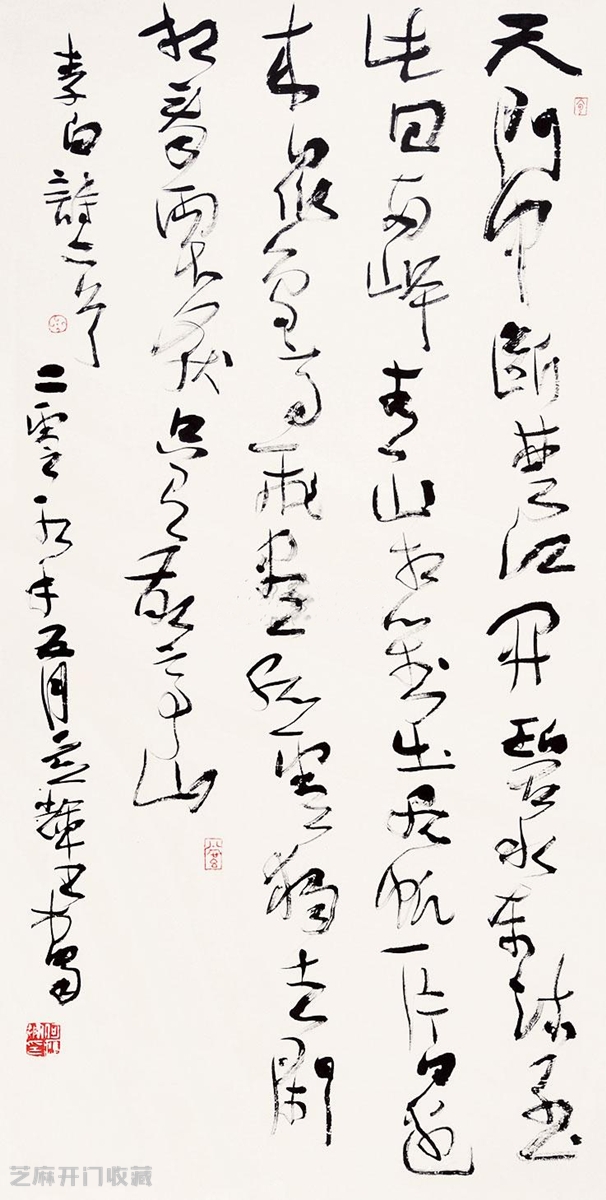 天門中斷楚江開碧水東流至
此回兩岸青山相對出孤帆一片日邊
来眾鳥高飛盡孤雲獨去閑
相看兩不厭只有敬亭山
李白詩二首
二零年五月
芝麻开门收藏